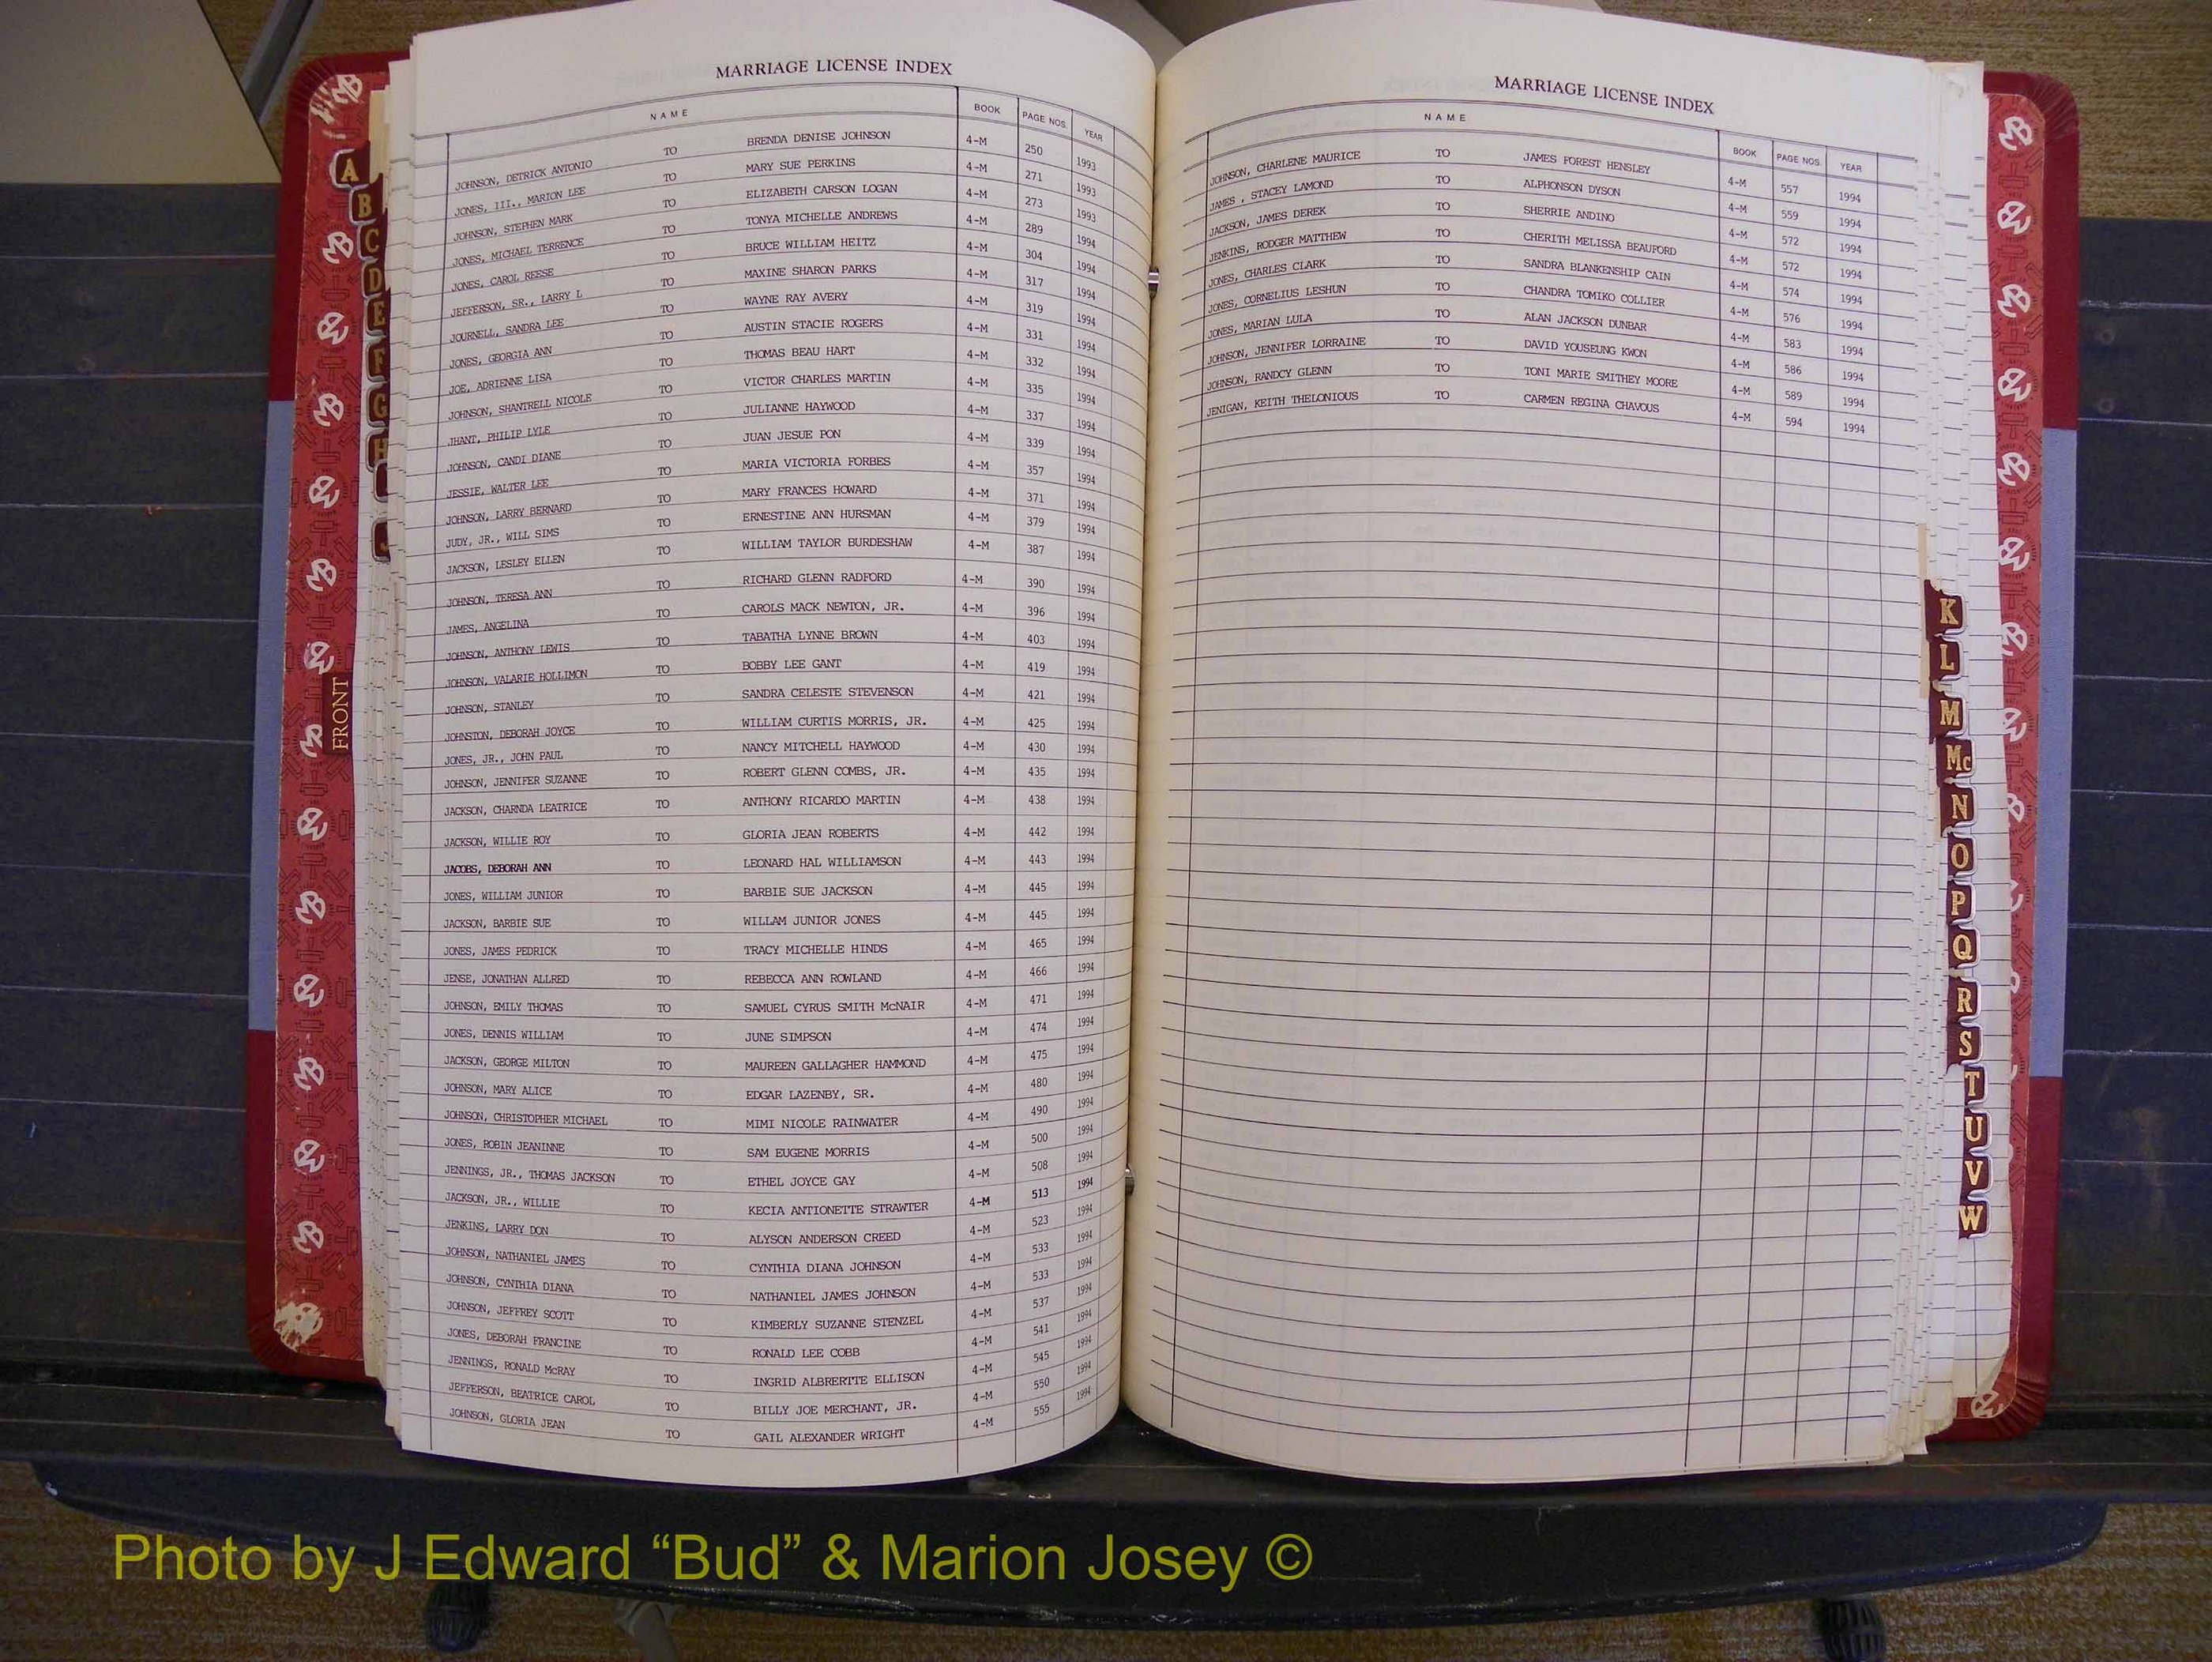 MARRIAGE LICENSE INDEX
NAME BOOK PAGE NOS. YEAR
JOHNSON, DETRICK ANTONIO TO BRENDA DENISE JOHNSON 4-M 250 1993
JONES, III., MARION LEE TO MARY SUE PERKINS 4-M 271 1993
JOHNSON, STEPHEN MARK TO ELIZABETH CARSON LOGAN 4-M 273 1993
JONES, MICHAEL TERRENCE TO TONYA MICHELLE ANDREWS 4-M 289 1994
JONES, CAROL REESE TO BRUCE WILLIAM HEITZ 4-M 304 1994
JEFFERSON, SR., LARRY L TO MAXINE SHARON PARKS 4-M 317 1994
JOURNELL, SANDRA LEE TO WAYNE RAY AVERY 4-M 319 1994
JONES, GEORGIA ANN TO AUSTIN STACIE ROGERS 4-M 331 1994
JOE, ADRIENNE LISA TO THOMAS BEAU HART 4-M 332 1994
JOHNSON, SHANTRELL NICOLE TO VICTOR CHARLES MARTIN 4-M 335 1994
JHANT, PHILIP LYLE TO JULIANNE HAYWOOD 4-M 337 1994
JOHNSON, CANDI DIANE TO JUAN JESUE PON 4-M 339 1994
JESSIE, WALTER LEE TO MARIA VICTORIA FORBES 4-M 357 1994
JOHNSON, LARRY BERNARD TO MARY FRANCES HOWARD 4-M 371 1994
JUDY, JR., WILL SIMS TO ERNESTINE ANN HURSMAN 4-M 379 1994
JACKSON, LESLEY ELLEN TO WILLIAM TAYLOR BURDESHAW 4-M 387 1994
JOHNSON, TERESA ANN TO RICHARD GLENN RADFORD 4-M 390 1994
JAMES, ANGELINA TO CAROLS MACK NEWTON, JR. 4-M 396 1994
JOHNSON, ANTHONY LEWIS TO TABATHA LYNNE BROWN 4-M 403 1994
JOHNSON, VALARIE HOLLIMON TO BOBBY LEE GANT 4-M 419 1994
JOHNSON, STANLEY TO SANDRA CELESTE STEVENSON 4-M 421 1994
JOHNSTON, DEBORAH JOYCE TO WILLIAM CURTIS MORRIS, JR. 4-M 425 1994
JONES, JR., JOHN PAUL TO NANCY MITCHELL HAYWOOD 4-M 430 1994
JOHNSON, JENNIFER SUZANNE TO ROBERT GLENN COMBS, JR. 4-M 435 1994
JACKSON, CHARNDA LEATRICE TO ANTHONY RICARDO MARTIN 4-M 438 1994
JACKSON, WILLIE ROY TO GLORIA JEAN ROBERTS 4-M 442 1994
JACOBS, DEBORAH ANN TO LEONARD HAL WILLIAMSON 4-M 443 1994
JONES, WILLIAM JUNIOR TO BARBIE SUE JACKSON 4-M 445 1994
JACKSON, BARBIE SUE TO WILLAM JUNIOR JONES 4-M 445 1994
JONES, JAMES PEDRICK TO TRACY MICHELLE HINDS 4-M 465 1994
JENSE, JONATHAN ALLRED TO REBECCA ANN ROWLAND 4-M 466 1994
JOHNSON, EMILY THOMAS TO SAMUEL CYRUS SMITH McNAIR 4-M 471 1994
JONES, DENNIS WILLIAM TO JUNE SIMPSON 4-M 474 1994
JACKSON, GEORGE MILTON TO MAUREEN GALLAGHER HAMMOND 4-M 475 1994
JOHNSON, MARY ALICE TO EDGAR LAZENBY, SR. 4-M 480 1994
JOHNSON, CHRISTOPHER MICHAEL TO MIMI NICOLE RAINWATER 4-M 490 1994
JONES, ROBIN JEANINNE TO SAM EUGENE MORRIS 4-M 500 1994
JENNINGS, JR., THOMAS JACKSON TO ETHEL JOYCE GAY 4-M 508 1994
JACKSON, JR., WILLIE TO KECIA ANTIONETTE STRAWTER 4-M 513 1994
JENKINS, LARRY DON TO ALYSON ANDERSON CREED 4-M 523 1994
JOHNSON, NATHANIEL JAMES TO CYNTHIA DIANA JOHNSON 4-M 533 1994
JOHNSON, CYNTHIA DIANA TO NATHANIEL JAMES JOHNSON 4-M 533 1994
JOHNSON, JEFFREY SCOTT TO KIMBERLY SUZANNE STENZEL 4-M 537 1994
JONES, DEBORAH FRANCINE TO RONALD LEE COBB 4-M 541 1994
JENNINGS, RONALD McRAY TO INGRID ALBRERTTE ELLISON 4-M 545 1994
JEFFERSON, BEATRICE CAROL TO BILLY JOE MERCHANT, JR. 4-M 550 1994
JOHNSON, GLORIA JEAN TO GAIL ALEXANDER WRIGHT 4-M 555 1994
MARRIAGE LICENSE INDEX
NAME BOOK PAGE NOS. YEAR
JOHNSON, CHARLENE MAURICE TO JAMES FOREST HENSLEY 4-M 557 1994
JAMES , STACEY LAMOND TO ALPHONSON DYSON 4-M 559 1994
JACKSON, JAMES DEREK TO SHERRIE ANDINO 4-M 572 1994
JENKINS, RODGER MATTHEW TO CHERITH MELISSA BEAUFORD 4-M 572 1994
JONES, CHARLES CLARK TO SANDRA BLANKENSHIP CAIN 4-M 574 1994
JONES, CORNELIUS LESHUN TO CHANDRA TOMIKO COLLIER 4-M 576 1994
JONES, MARIAN LULA TO ALAN JACKSON DUNBAR 4-M 583 1994
JOHNSON, JENNIFER LORRAINE TO DAVID YOUSEUNG KWON 4-M 586 1994
JOHNSON, RANDCY GLENN TO TONI MARIE SMITHEY MOORE 4-M 589 1994
JENIGAN, KEITH THELONIOUS TO CARMEN REGINA CHAVOUS 4-M 594 1994
A
B
C
D
E
F
G
H
J
FRONT
K
L
M
Mc
N
O
P
Q
R
S
T
U
V
W
Photo by J Edward “Bud” & Marion Josey ©